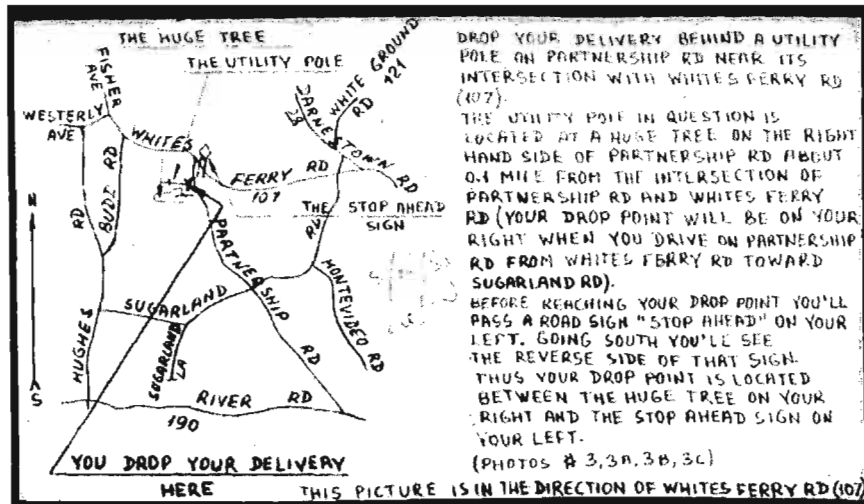 THE HUGE TREE
THE UTILITY POLE
FISHER
AVE
WESTERLY
AVE
WHITES
FERRY RD
107
DARNESTOWN RD
28
WHITE GROUND
RD
121
BUDD RD
HUGHES
RD
THE STOP AHEAD
SIGN
PARTNERSHIP
RD
SUGARLAND
RD
SUGARLAND
LA
MONTEVIDEO RD
RIVER RD
190
N
S
YOU DROP YOUR DELIVERY
HERE
DROP YOUR DELIVERY BEHIND A UTILITY
POLE ON PARTNERSHIP RD NEAR ITS
INTERSECTION WITH WHITES FERRY RD
(107).
THE UTILITY POLE IN QUESTION IS
LOCATED AT A HUGE TREE ON THE RIGHT
HAND SIDE OF PARTNERSHIP RD ABOUT
0.1 MILE FROM THE INTERSECTION OF
PARTNERSHIP RD AND WHITES FERRY
RD (YOUR DROP POINT WILL BE ON YOUR
RIGHT WHEN YOU DRIVE ON PARTNERSHIP
RD FROM WHITES FERRY RD TOWARD
SUGARLAND RD).
BEFORE REACHING YOUR DROP POINT YOU'LL
PASS A ROAD SIGN "STOP AHEAD" ON YOUR
LEFT. GOING SOUTH YOU'LL SEE
THE REVERSE SIDE OF THAT SIGN.
THUS YOUR DROP POINT IS LOCATED
BETWEEN THE HUGE TREE ON YOUR
RIGHT AND THE STOP AHEAD SIGN ON
YOUR LEFT.
(PHOTOS # 3, 3A, 3B, 3C)
THIS PICTURE IS IN THE DIRECTION OF WHITES FERRY RD (107